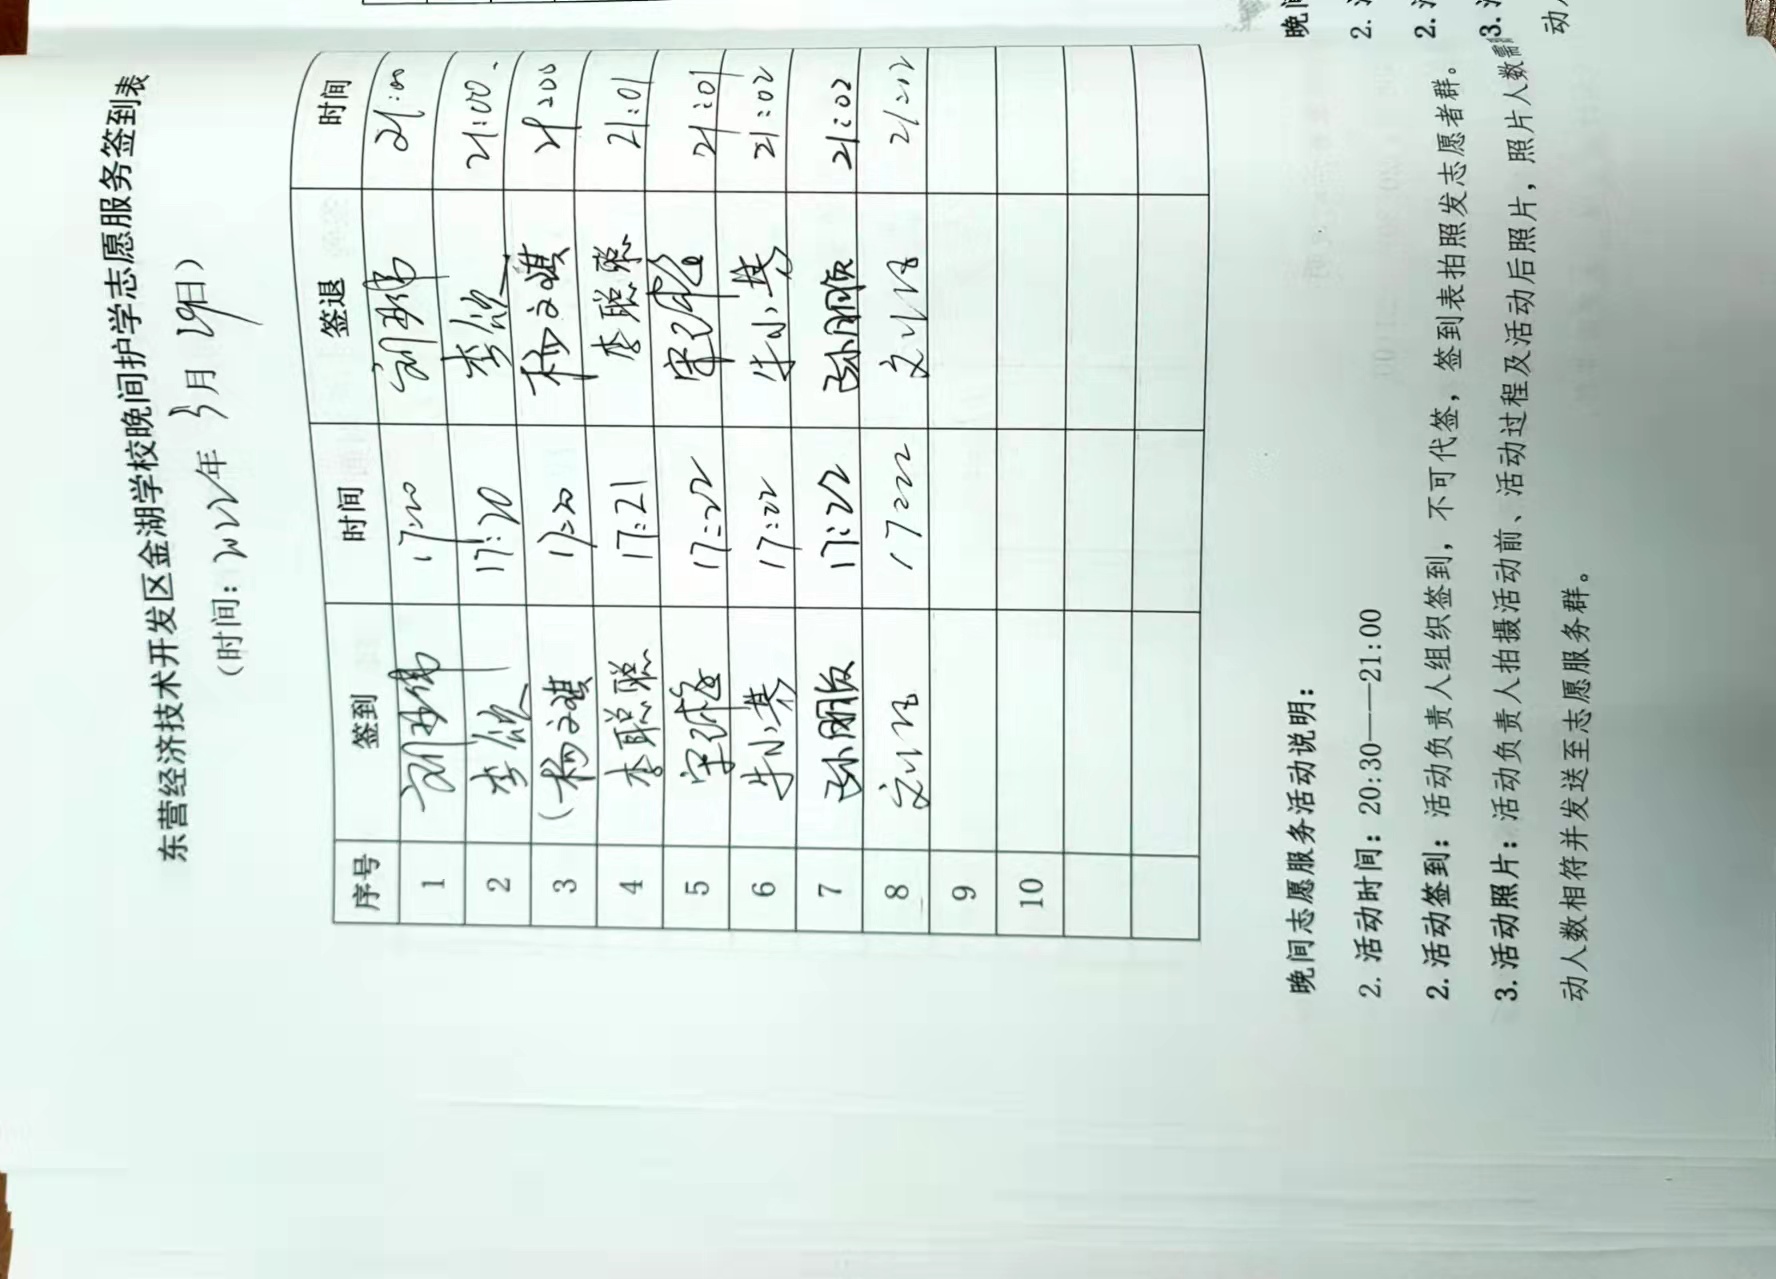 东营经济技术开发区金湖学校晚间护学志愿服务签到表
(时间: 2022年 3月 29日)
序号 签到 时间 签退 时间
1 17:20 21:00
2 17:20 21:00
3 杨文祺 17:20 杨文祺 21:00
4 李聪聪 17:21 李聪聪 21:01
5 17:22 21:01
6 牛小燕 17:22 牛小燕 21:02
7 孙丽娟 17:22 孙丽娟 21:02
8 17:22 21:02
9
10
晚间志愿服务活动说明:
2. 活动时间: 20:30——21:00
2. 活动签到: 活动负责人组织签到, 不可代签, 签到表拍照发志愿者群。
3. 活动照片: 活动负责人拍摄活动前、活动过程及活动后照片, 照片人数需
动人数相符并发送至志愿服务群。
晚
2.
2.
3.
动